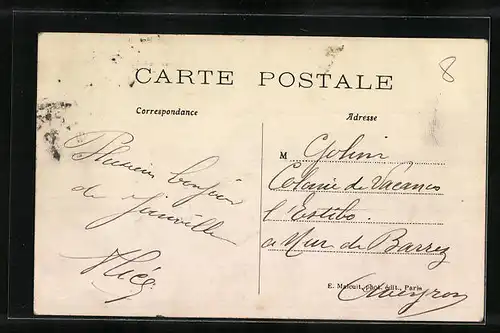 CARTE POSTALE
8
Correspondance
Adresse
bonjour
de Joinville
M
Colonie de Vacances
l'Estibo.
à Mur de Barrez
Aveyron
E. Malcuit, phot. édit., Paris